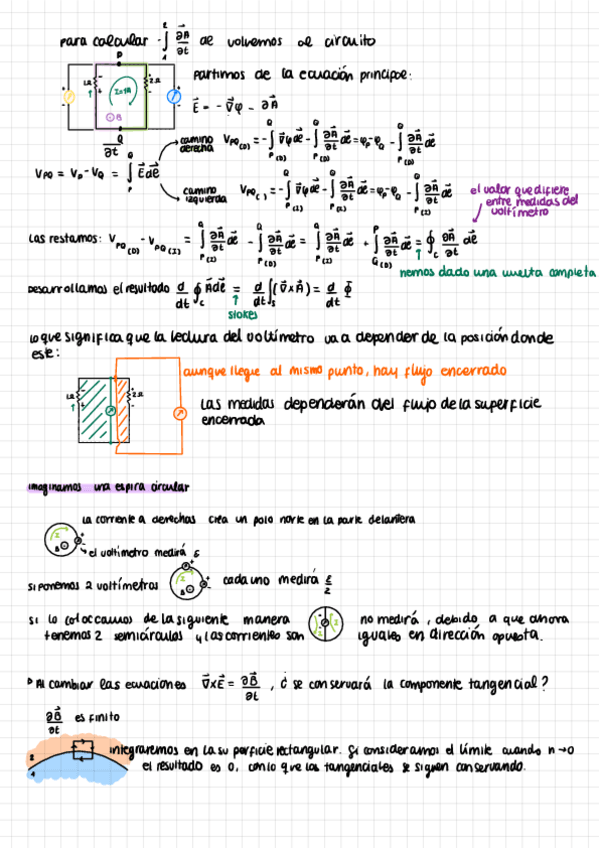 para calcular -∫₁² ∂A⃗/∂t de volvemos al circuito
P
1Ω 2Ω
I=1A
⊙B
Q
partimos de la ecuación principe:
E⃗ = - ∇⃗φ - ∂A⃗
∂t
camino derecha V_PQ(D) = -∫_P(D)^Q ∇⃗φde⃗ - ∫_P(D)^Q ∂A⃗/∂t de⃗ = φ_P-φ_Q - ∫_P(D)^Q ∂A⃗/∂t de⃗
V_PQ = V_P - V_Q = ∫_P^Q E⃗de⃗
camino izquierda V_PQ(I) = -∫_P(I)^Q ∇⃗φde⃗ - ∫_P(I)^Q ∂A⃗/∂t de⃗ = φ_P-φ_Q - ∫_P(I)^Q ∂A⃗/∂t de⃗
el valor que difiere
entre medidas del
voltímetro
Las restamos: V_PQ(D) - V_PQ(I) = ∫_P(I)^Q ∂A⃗/∂t de⃗ - ∫_P(D)^Q ∂A⃗/∂t de⃗ = ∫_P(I)^Q ∂A⃗/∂t de⃗ + ∫_Q(D)^P ∂A⃗/∂t de⃗ = ∮_C ∂A⃗/∂t de⃗
hemos dado una vuelta completa
Desarrollamos el resultado d/dt ∮_C A⃗de⃗ = d/dt ∫_S (∇⃗×A⃗) = d/dt Φ
stokes
lo que significa que la lectura del voltímetro va a depender de la posición donde
este:
1Ω 2Ω
aunque llegue al mismo punto, hay flujo encerrado
Las medidas dependerán del flujo de la superficie
encerrada
imaginamos una espira circular
la corriente a derechas crea un polo norte en la parte delantera
I
B⊙
el voltímetro medirá ε
si ponemos 2 voltímetros
I
B⊙
cada uno medirá ε/2
si lo colocamos de la siguiente manera no medirá, debido a que ahora
tenemos 2 semicírculos y las corrientes son iguales en dirección opuesta.
Al cambiar las ecuaciones ∇⃗×E⃗ = ∂B⃗/∂t , ¿ se conservará la componente tangencial?
∂B⃗/∂t es finito
2
1
integraremos en la su perficie rectangular. Si consideramos el límite cuando h→0
el resultado es 0, con lo que las tangenciales se siguen conservando.